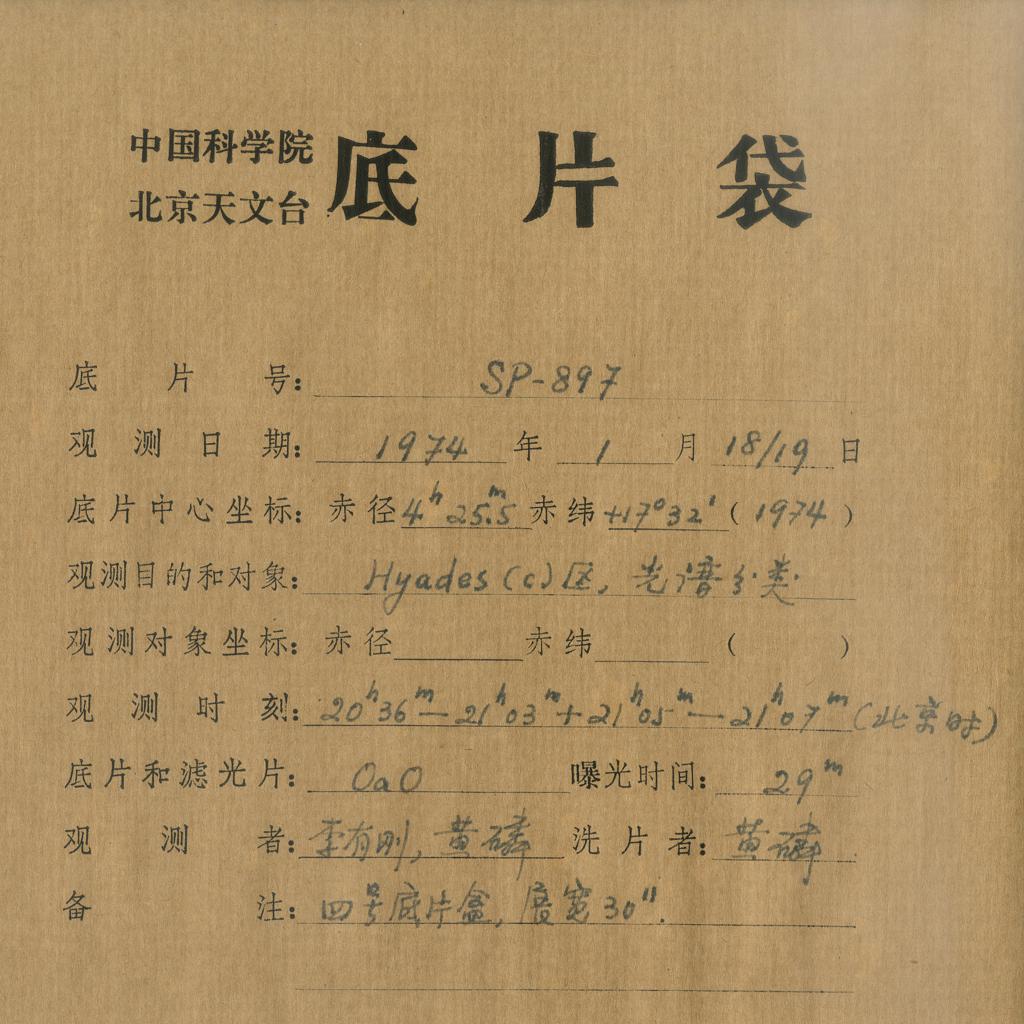 中国科学院
北京天文台
底片袋
底片号：SP-897
观测日期：1974年1月18/19日
底片中心坐标：赤径4ʰ25ᵐ.5赤纬+17°32′(1974)
观测目的和对象：Hyades(c)区，光谱分类.
观测对象坐标：赤径 赤纬 ( )
观测时刻：20ʰ36ᵐ—21ʰ03ᵐ+21ʰ05ᵐ—21ʰ07ᵐ(北京时)
底片和滤光片：OaO 曝光时间：29ᵐ
观测者：李有刚，黄磷 洗片者：黄磷
备注：四号底片盒，展宽30″.